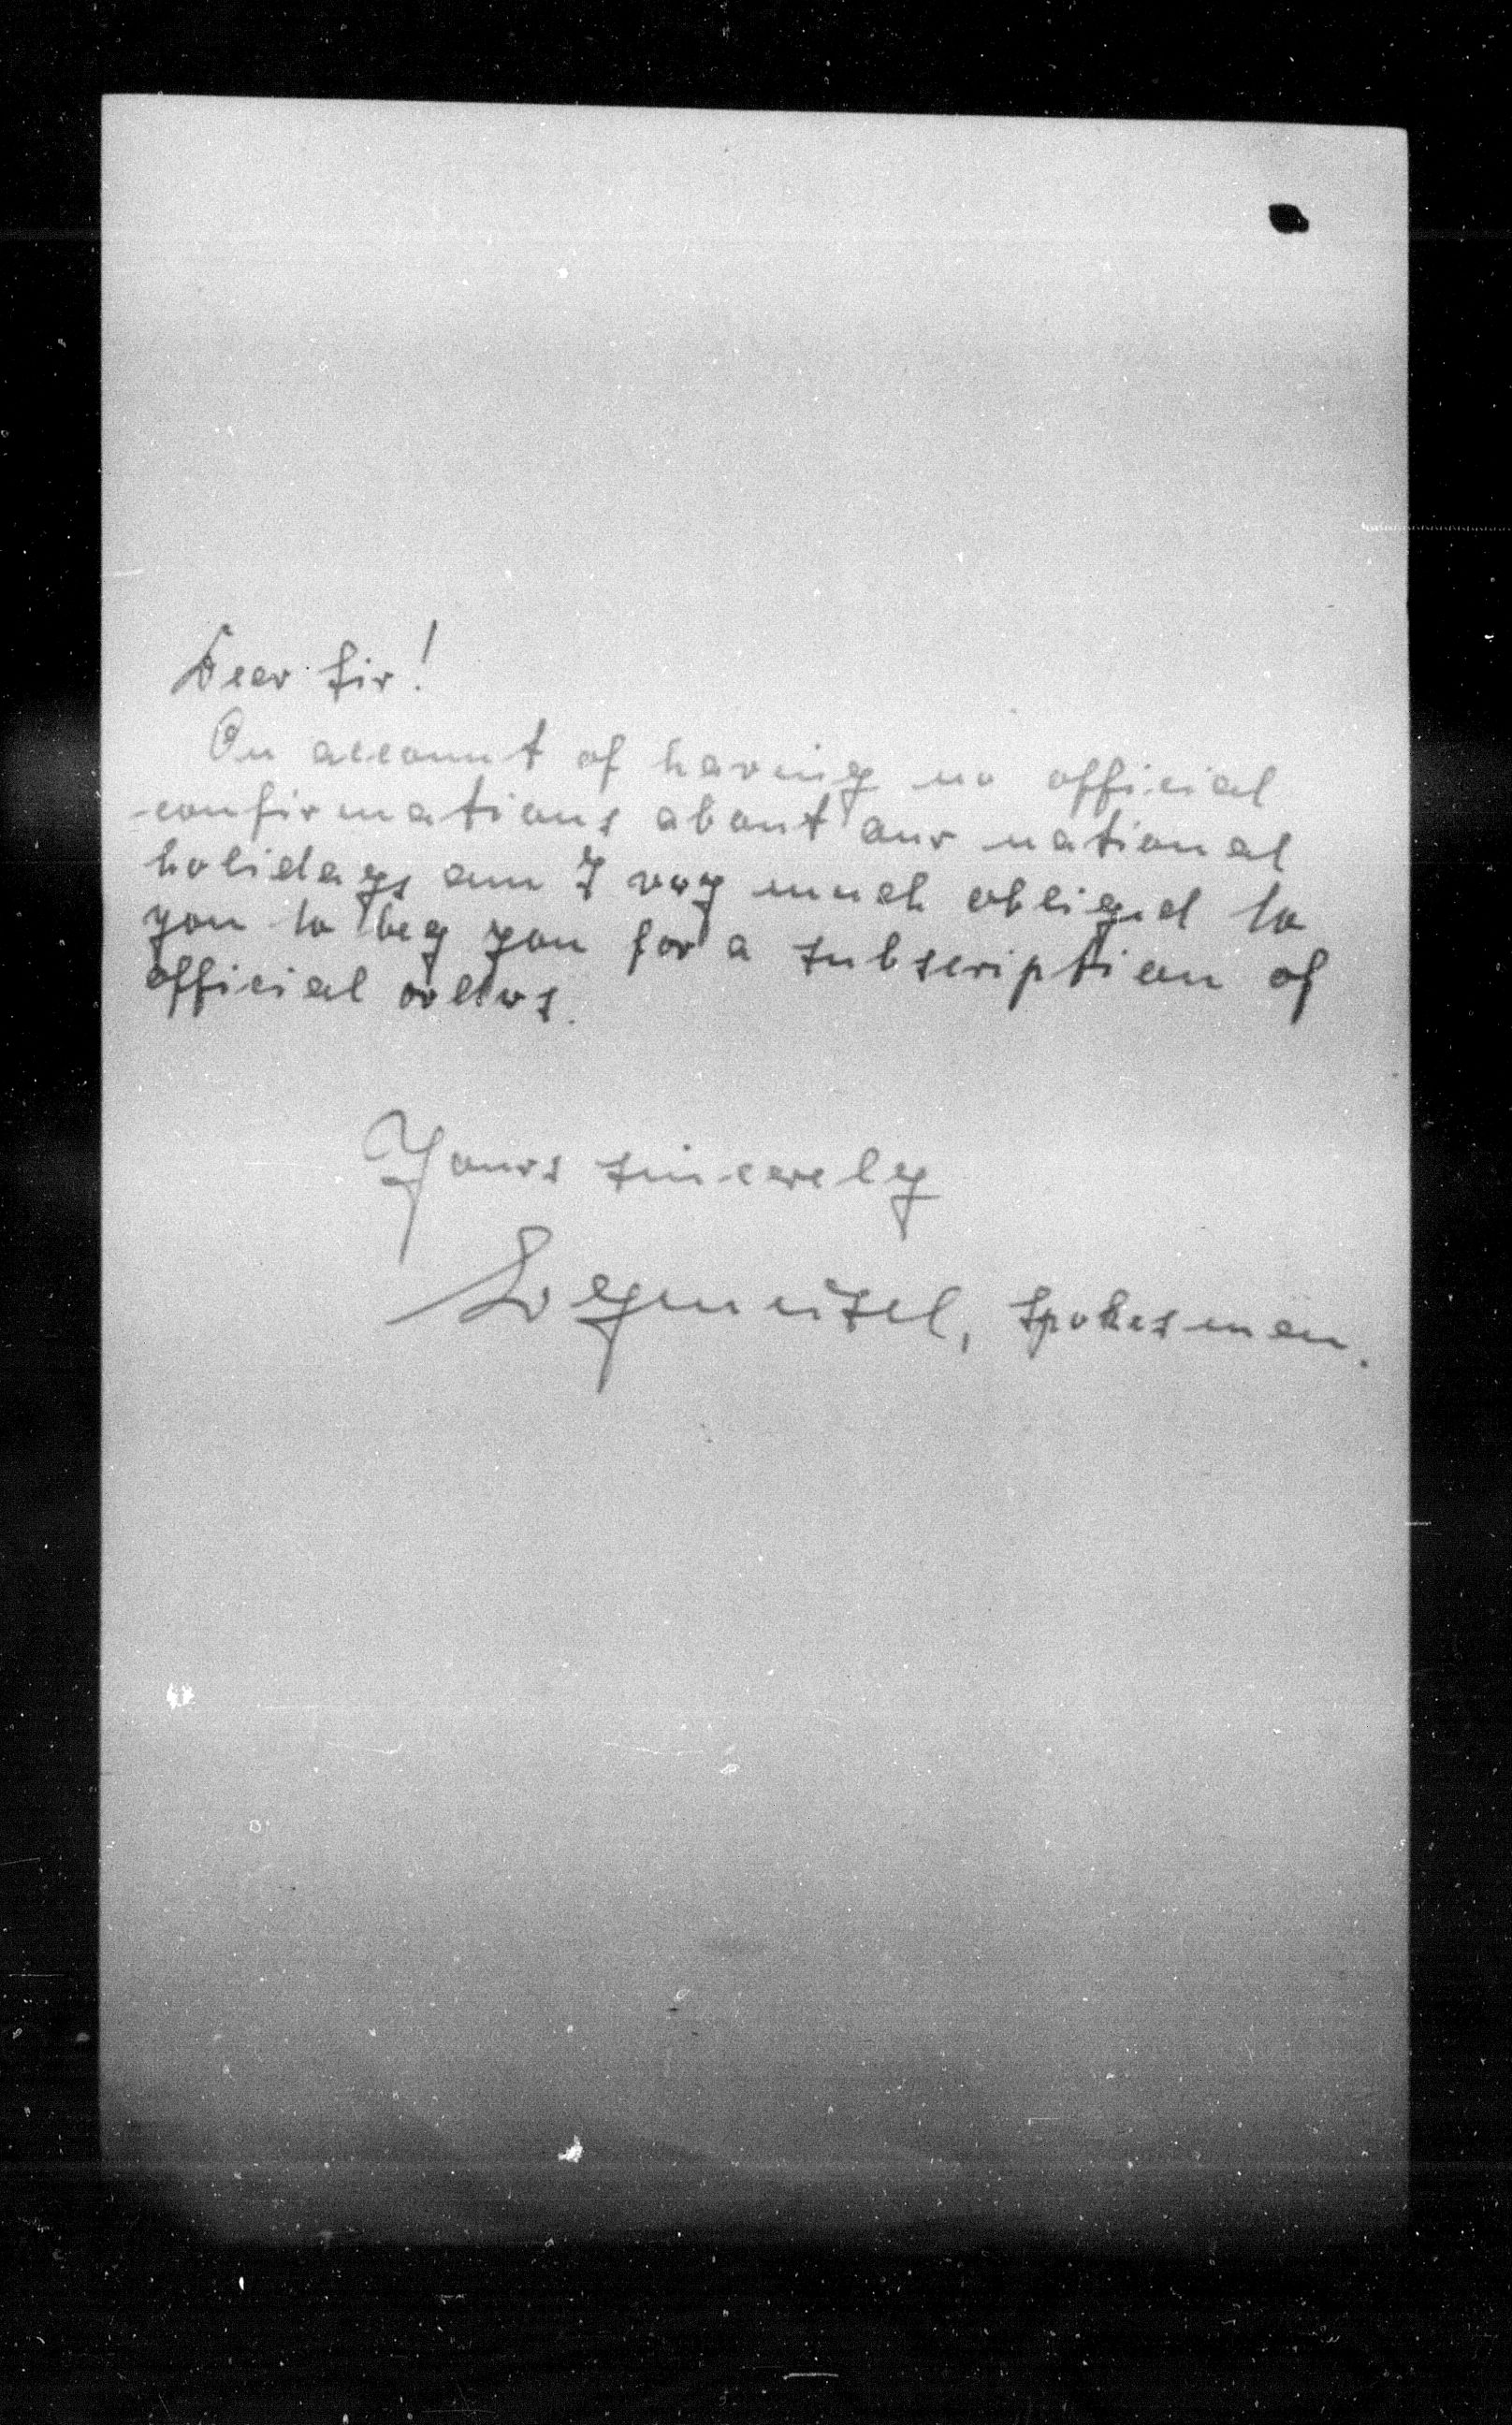 Dear Sir!
On account of having no official
confirmations about our national
holidays am I very much obliged to
you to beg you for a subscription of
official orders.
Yours sincerely
spokesman.